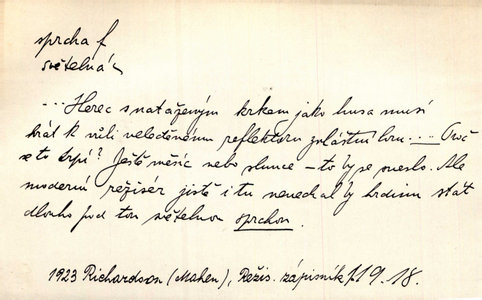 sprcha f
světelná
... Herec s nataženým krkem jako husa musí
hrát k vůli velectěnému reflektoru zvláštní hru.... Proč
se to trpí? Ještě měsíc nebo slunce – to by se sneslo. Ale
moderní režisér jistě i tu nenechal by hrdinu stát
dlouho pod tou světelnou sprchou.
1923 Richardson (Mahen), Režis. zápisník, 19. 18.